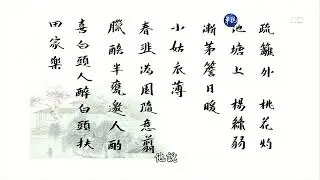 疏籬外 桃花灼
池塘上 楊絲弱
漸茅簷日暖
小姑衣薄
春韭滿園隨意剪
臘醅半甕邀人酌
喜白頭人醉白頭扶
田家樂
他說